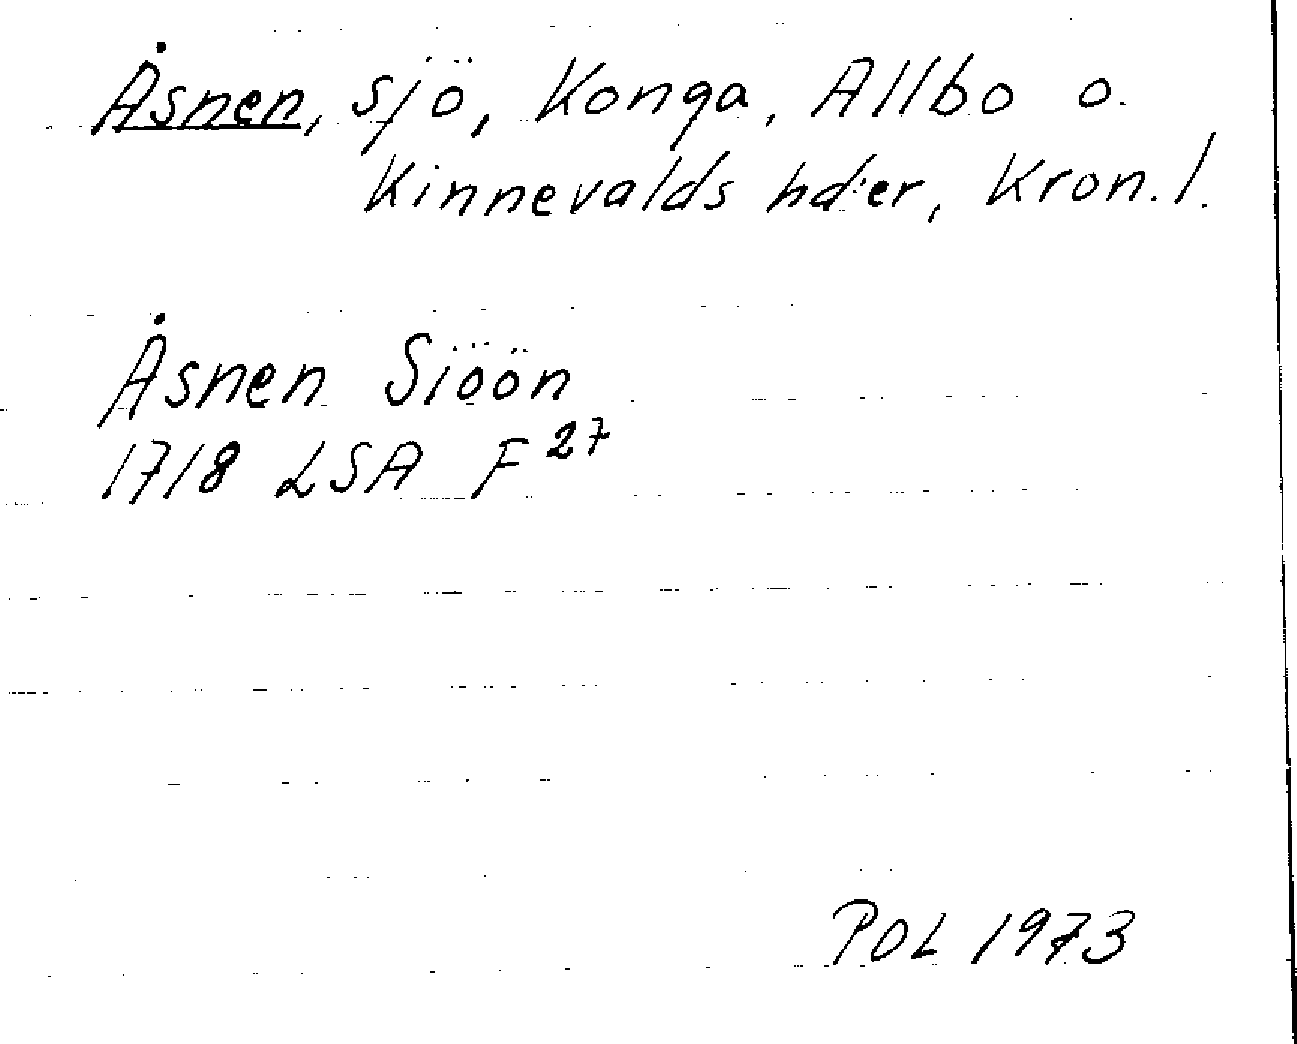 Åsnen, sjö, Konga, Allbo o.
Kinnevalds hd:er, Kron. l.
Åsnen Siöön
1718 LSA F 27
POL 1973